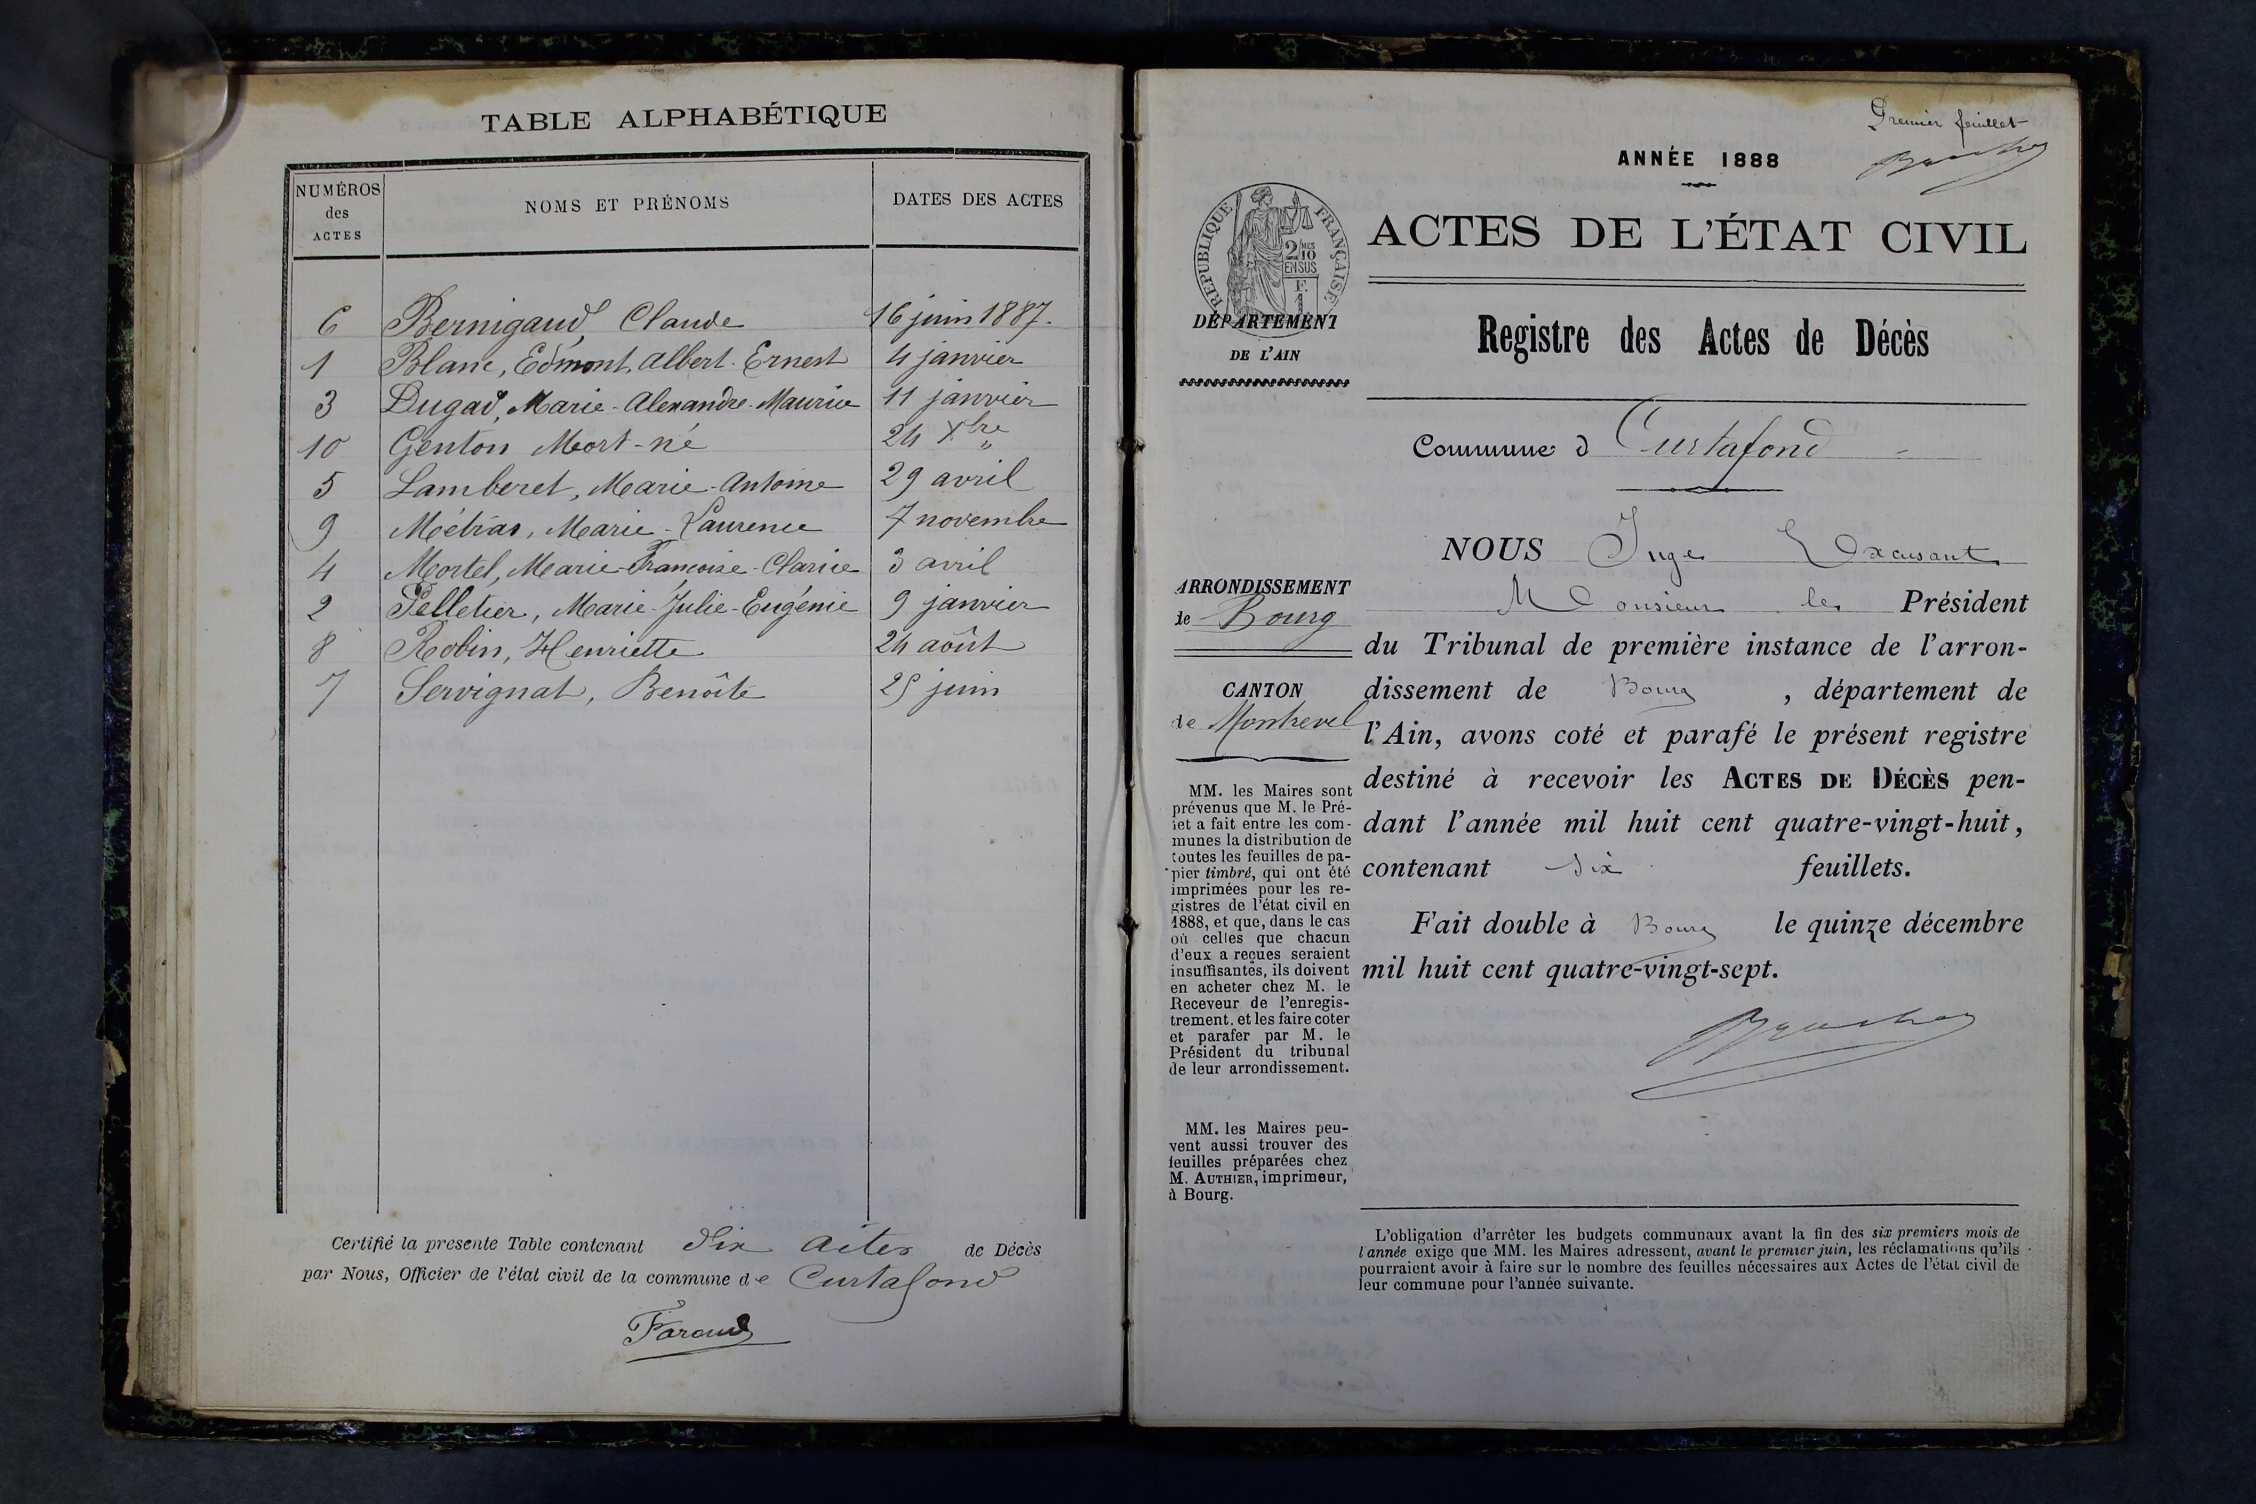 TABLE ALPHABÉTIQUE
NUMÉROS des ACTES
NOMS ET PRÉNOMS
DATES DES ACTES
6 Bernigaud, Claude 16 juin 1887.
1 Blanc, Edmont, Albert. Ernest 4 janvier
3 Dugad, Marie-Alexandre-Maurice 11 janvier
10 Genton Mort-né 24 Xbre "
5 Lamberet, Marie-Antoine 29 avril
9 Métras, Marie-Laurence 7 novembre
4 Mortel, Marie-Françoise-Clarice 3 avril
2 Pelletier, Marie-Julie-Eugénie 9 janvier
8 Robin, Henriette 24 août
7 Servignat, Benoîte 25 juin
Certifié la presente Table contenant dix actes de Décès
par Nous, Officier de l'état civil de la commune de Curtafond
Faraud
Premier feuillet
ANNÉE 1888
RÉPUBLIQUE FRANÇAISE
2/10
EN SUS
F.
1
ACTES DE L'ÉTAT CIVIL
DÉPARTEMENT
DE L'AIN
Registre des Actes de Décès
Commune d Curtafond
NOUS Juge Excusant
Monsieur le Président
du Tribunal de première instance de l'arron-
dissement de Bourg, département de
l'Ain, avons coté et parafé le présent registre
destiné à recevoir les ACTES DE DÉCÈS pen-
dant l'année mil huit cent quatre-vingt-huit,
contenant six feuillets.
Fait double à Bourg le quinze décembre
mil huit cent quatre-vingt-sept.
ARRONDISSEMENT
de Bourg
CANTON
de Montrevel
MM. les Maires sont
prévenus que M. le Pré-
fet a fait entre les com-
munes la distribution de
toutes les feuilles de pa-
pier timbré, qui ont été
imprimées pour les re-
gistres de l'état civil en
1888, et que, dans le cas
où celles que chacun
d'eux a reçues seraient
insuffisantes, ils doivent
en acheter chez M. le
Receveur de l'enregis-
trement. et les faire coter
et parafer par M. le
Président du tribunal
de leur arrondissement.
MM. les Maires peu-
vent aussi trouver des
feuilles préparées chez
M. AUTHIER, imprimeur,
à Bourg.
L'obligation d'arrêter les budgets communaux avant la fin des six premiers mois de
l'année exige que MM. les Maires adressent, avant le premier juin, les réclamations qu'ils
pourraient avoir à faire sur le nombre des feuilles nécessaires aux Actes de l'état civil de
leur commune pour l'année suivante.